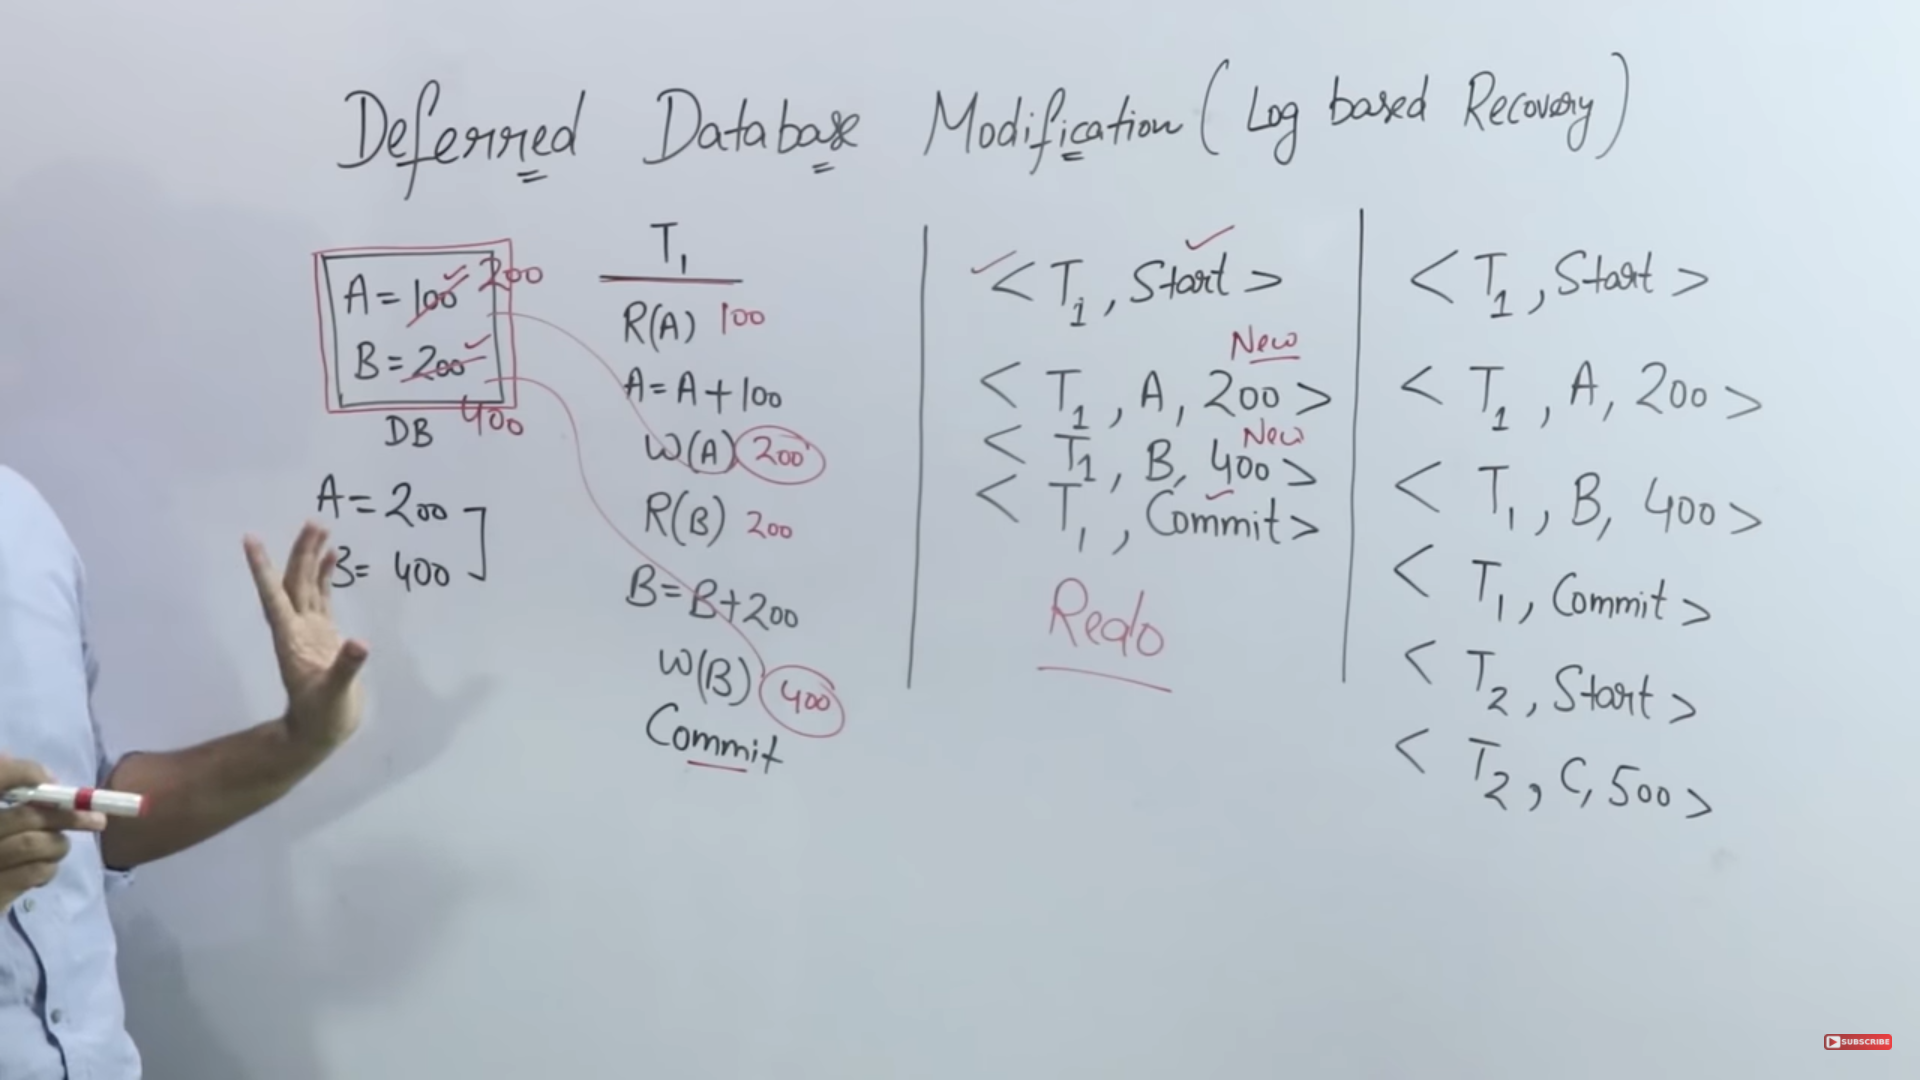 Deferred Database Modification (Log based Recovery)
A = 100 200
B = 200
400
DB
A = 200
B = 400
T1
R(A) 100
A = A + 100
W(A) 200
R(B) 200
B = B + 200
W(B) 400
Commit
< T1, Start >
New
< T1, A, 200 >
New
< T1, B, 400 >
< T1, Commit >
Redo
< T1, Start >
< T1, A, 200 >
< T1, B, 400 >
< T1, Commit >
< T2, Start >
< T2, C, 500 >
SUBSCRIBE